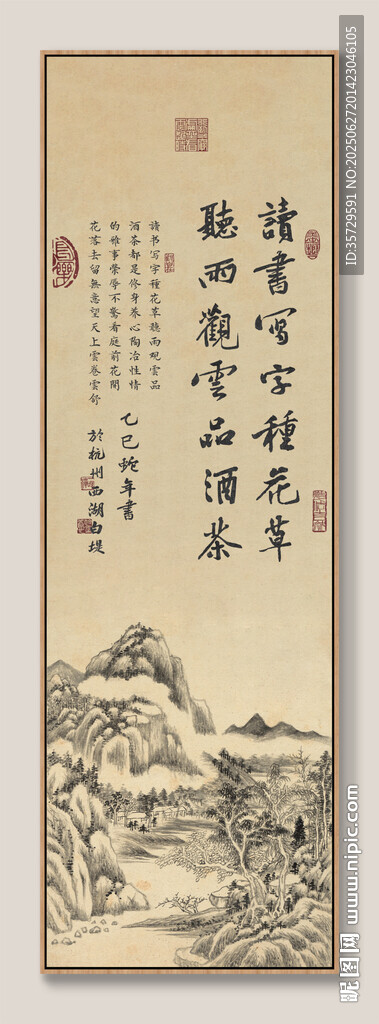 讀書寫字種花草
聽雨觀雲品酒茶
讀书写字種花草聽雨观雲品
酒茶都是修身养心陶冶性情
的雅事荣辱不驚看庭前花開
花落去留無意望天上雲卷雲舒
乙巳蛇年書
於杭州西湖白堤
ID:35729591 NO:20250627201423046105
昵图网 www.nipic.com